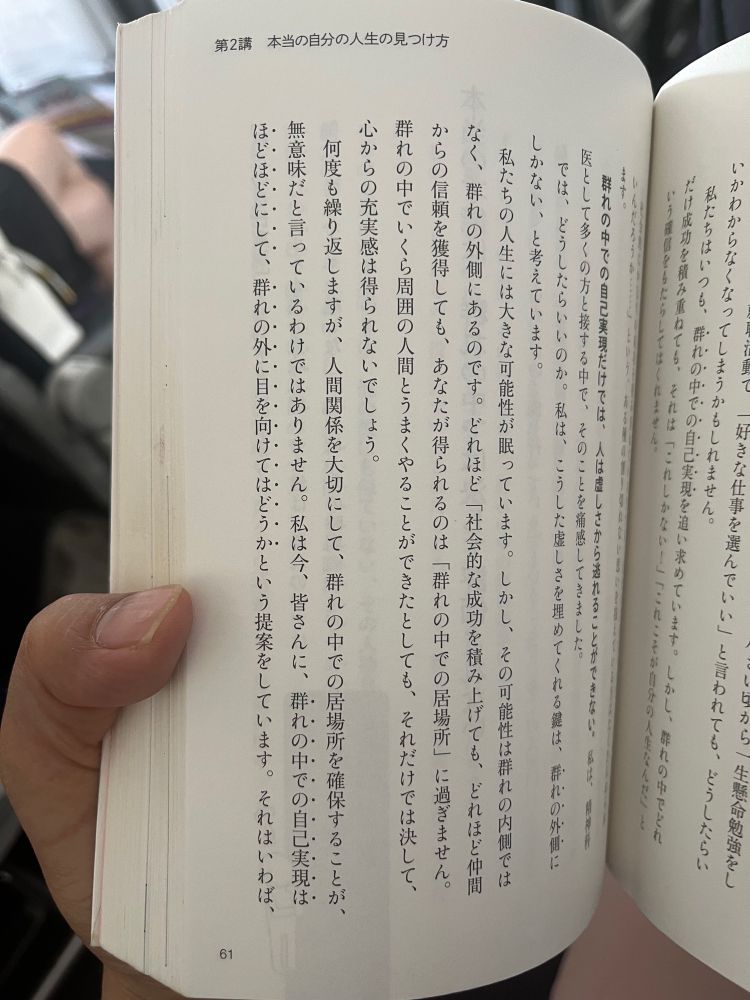 第2講 本当の自分の人生の見つけ方
いかわからなくなってしまうかもしれません。
私たちはいつも、群れの中での自己実現を追い求めています。しかし、群れの中でどれ
だけ成功を積み重ねても、それは「これしかない!」「これこそが自分の人生なんだ」と
いう確信をもたらしてはくれません。
ます。
群れの中での自己実現だけでは、人は虚しさから逃れることができない。私は、精神科
医として多くの方と接する中で、そのことを痛感してきました。
では、どうしたらいいのか。私は、こうした虚しさを埋めてくれる鍵は、群れの外側に
しかない、と考えています。
私たちの人生には大きな可能性が眠っています。しかし、その可能性は群れの内側では
なく、群れの外側にあるのです。どれほど「社会的な成功を積み上げても、どれほど仲間
からの信頼を獲得しても、あなたが得られるのは「群れの中での居場所」に過ぎません。
群れの中でいくら周囲の人間とうまくやることができたとしても、それだけでは決して、
心からの充実感は得られないでしょう。
何度も繰り返しますが、人間関係を大切にして、群れの中での居場所を確保することが、
無意味だと言っているわけではありません。私は今、皆さんに、群れの中での自己実現は
ほどほどにして、群れの外に目を向けてはどうかという提案をしています。それはいわば、
61